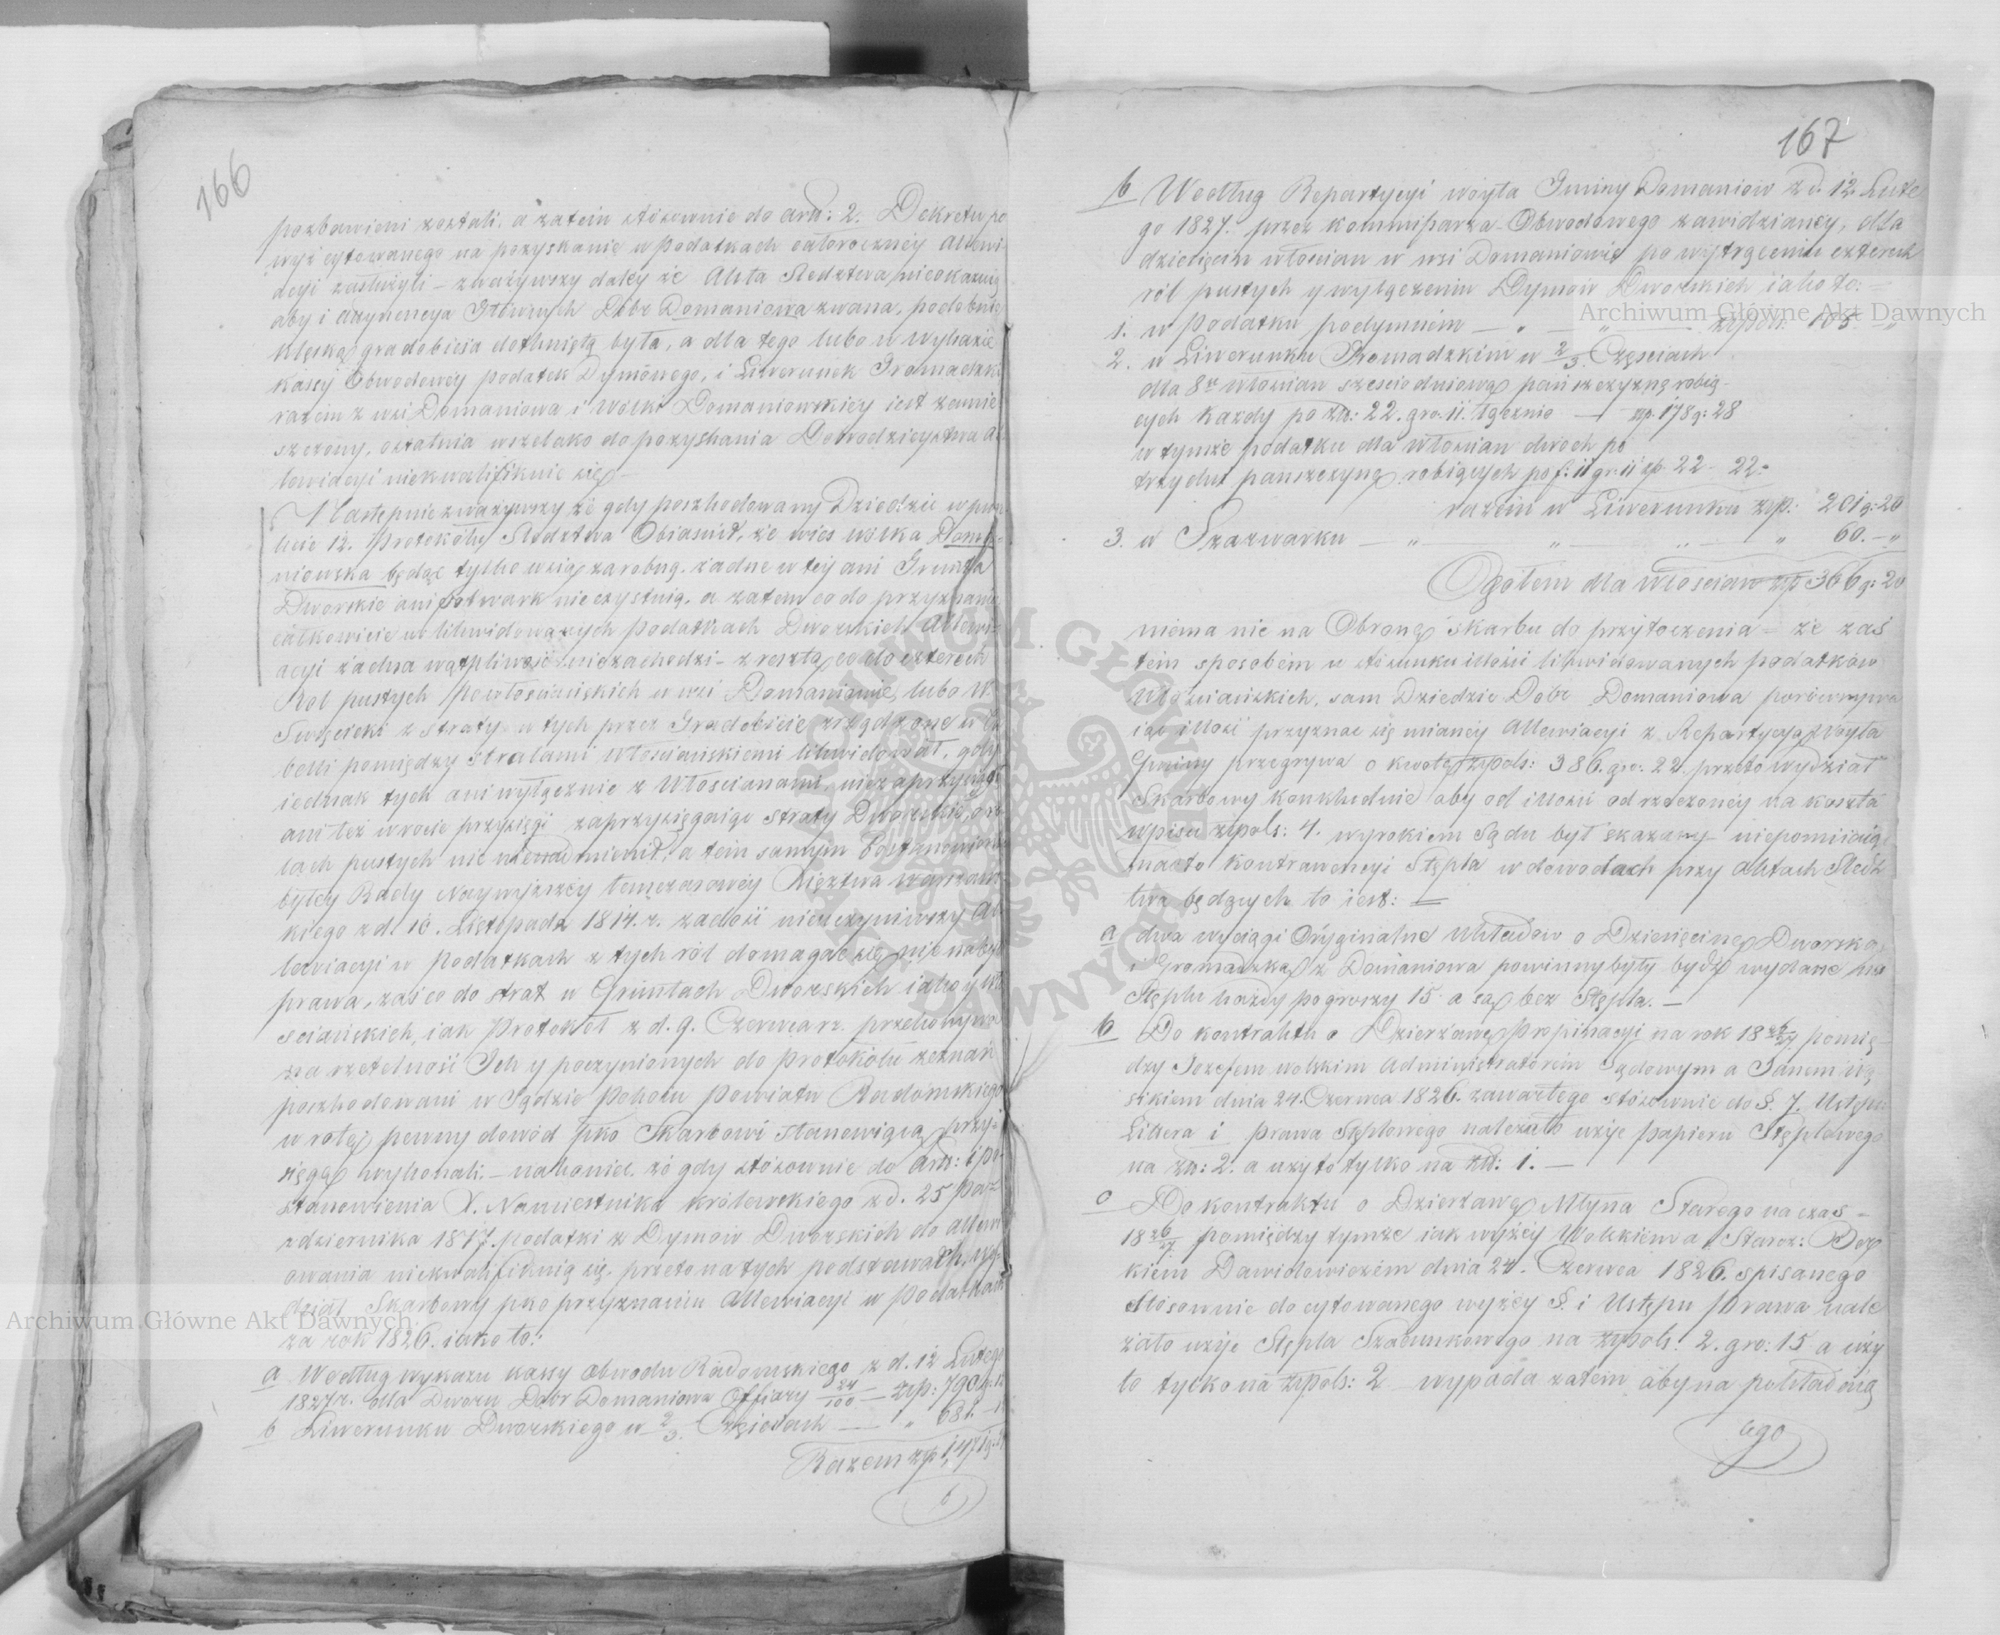 166
pozbawieni zostali, a zatem stósownie do art: 2. Dekretu po
wyż cytowanego na pozyskanie w podatkach całorocznéy Allewi
acyi zasłużyli – zważywszy daléy że Akta Sledztwa nieokazuią
aby i attynencya Głównych Dóbr Domaniowa zwana, podobnie
klęską gradobicia dotkniętą była, a dla tego lubo w wykazie
kassy Obwodowéy podatek Dymowego, i Liwerunek Gromadzki
razem z wsi Domaniowa i Wólki Domaniowskiéy iest zamie
szczony, ostatnia wszelako do pozyskania Dobrodzieystwa Al
lewiacyi niekwalifikuie się –
Następnie zważywszy że gdy poszkodowany Dziedzic w punk
kcie 12. Protokółu Sledztwa Obiasnił, że wieś wólka Doma-
niowska będąc tylko wsią zarobną, żadne w téy ani Grunta
Dworskie ani folwark nie exystuią, a zatem co do przyznania
całkowicie w likwidowanych podatkach Dworskich Allewi
acyi żadna wątpliwość niezachodzi – z resztą co do czterech
Ról pustych Po włościańskich w wsi Domaniowie, lubo W.
Swięcicki z Straty w tych przez Gradobicie zrządzone w Ta
belli pomiędzy stratami Włościańskiemi likwidował, gdy
iednak tych ani wyłącznie z Włościanami niezaprzysiągł
ani też w rocie przysięgi zaprzysięgaiąc Straty Dworskie, o ro
lach pustych nic nienadmienił; a tém samym Postanowieniu
byłéy Rady Naywyższéy tymczasowéy Xięztwa Warszaws
kiego z d. 16. Listopada 1814. r. zadość nieuczyniwszy Al
lewiacyi w podatkach z tych ról domagać się nie nabył
prawa, zaś co do strat w Gruntach Dworskich iako y Wło
sciańskich, iak Protokół z d. 9. Czerwca r. z. przekonywa
za rzetelność Ich y poczynionych do protokółu zeznań
poszkodowani w Sądzie Pokoiu Powiatu Radomskiego
w rotę pewny dowód pko Skarbowi stanowiącą przy-
sięgę wykonali. – nakoniec że gdy stósownie do art: 1 po
stanowienia X. Namiestnika królewskiego z d. 25 Paź
dziernika 1817. podatki z Dymów Dworskich do allewi
owania niekwalifikuią się, przeto na tych podstawach, wy
dział Skarbowy pko przyznaniu Allewiacyi w Podatkach
za rok 1826. iako to:
a Według wykazu kassy obwodu Radomskiego z d. 12 Lutego
1827 r. dla Dworu Dóbr Domaniowa Offiary 24/100 – zlp: 790 g:
b Liwerunku Dworskiego w 2/3. Częściach – „ 681. –
Razem zlp 1,471 g:
b
167
b Według Repartycyi woyta Gminy Domaniów z d. 12 Lute
go 1827. przez kommissarza Obwodowego zawidzianey, dla
dziesięciu włościan w wsi Domaniowie po wytrąceniu czterech
ról pustych y wyłączeniu Dymów Dworskich iako to: =
1. w podatku podymném – „ – „ – zlpol: 105 – „
2. w Liwerunku Gromadzkim w 2/3. Częściach
dla 8iu włościan sześciodniową pańszczyznę robią-
cych każdy po zł: 22. gro: 11. łącznie – zlp. 178 g: 28
w tymże podatku dla włościan dwóch po
trzydni pańszczyznę robiących po f: 11 gr: 11 zlp. 22 – 22.
razem w Liwerunku zlp: 201 g: 20
3. w Szarwarku – „ – „ – „ – „ 60. – „
Ogółem dla włościan zlp 366 g: 20
niema nic na Obronę skarbu do przytoczenia – że zaś
tém sposobém w stósunku illości likwidowanych podatków
włościańskich, sam Dziedzic Dóbr Domaniowa porównywa
iąc illość przyznać się mianéy Allewiacyi z Repartycyą Woyta
Gminy przegrywa o kwotę zlpols: 386. gro: 22. przeto wydział
Skarbowy konkluduie aby od illości odrzeczonéy na koszta
wpisu zlpols: 4. wyrokiem Sądu był skazany – niepomiiaią
nadto kontrawencyi Stępla w dowodach przy Aktach Sledz
twa będących to iest: =
a dwa wyciągi Oryginalne Układów o Dziesięcinę Dworską
i Gromadzką z Domaniowa powinny były bydź wydane na
Stęplu każdy po groszy 15 a są bez Stępla. –
b Do kontraktu o Dzierżawę Propinacyi na rok 1826/27 pomię
dzy Jozefem wolskim Administratorém Sądowym a Janem
sikiem dnia 24. Czerwca 1826. zawartego stósownie do §. 7. Ustępu
Littera i Prawa Stęplowego należało użyć papieru Stęplowego
na zł: 2. a użyto tylko na zł: 1. –
c Do kontraktu o Dzierżawę Młyna Starego na czas –
1826/27. pomiędzy tymże iak wyżéy Wolskiem a Staroz: Ber
kiem Dawidowiczém dnia 24. Czerwca 1826. spisanego
Stósownie do cytowanego wyżéy §. i Ustępu Prawa nale
żało użyć Stępla Szacunkowego na zlpols: 2. gro: 15 a uży
to tylko na zlpols: 2 wypada zatem aby na pokładaią
cego